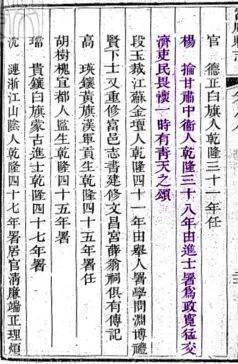 官　德正白旗人乾隆三十一年任
楊　掄甘肅中衛人乾隆三十八年由進士署爲政寬猛交
濟吏民畏懷一時有靑天之頌
段玉裁江蘇金壇人乾隆四十一年由舉人署學問淵博禮
賢下士又重修富邑志書建修文昌宮薛翁祠俱有傳記
高　瑛鑲黃旗漢軍貢生乾隆四十五年任
胡樹槐宜都人監生乾隆四十五年署
瑞　貴鑲白旗蒙古進士乾隆四十七年署
沈　漣浙江山陰人乾隆四十七年署居官淸廉端正理煩